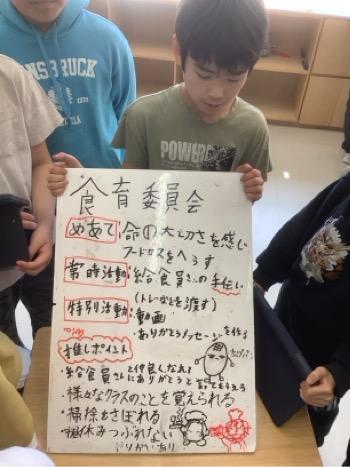 NSBRUCK
POWER
食育委員会
めあて:命の大切さを感じ
フードロスをへらす
常時活動:給食員さんの手伝い
(トレーなどを渡す)
特別活動:動画
・ありがとうメッセージを作る
推しポイント
・給食員さんと仲良しなれる
にありがとうと言ってもらえる
・様々なクラスのことを覚えられる
・掃除をさぼれる
・昼休みつぶれない
やりがいあり